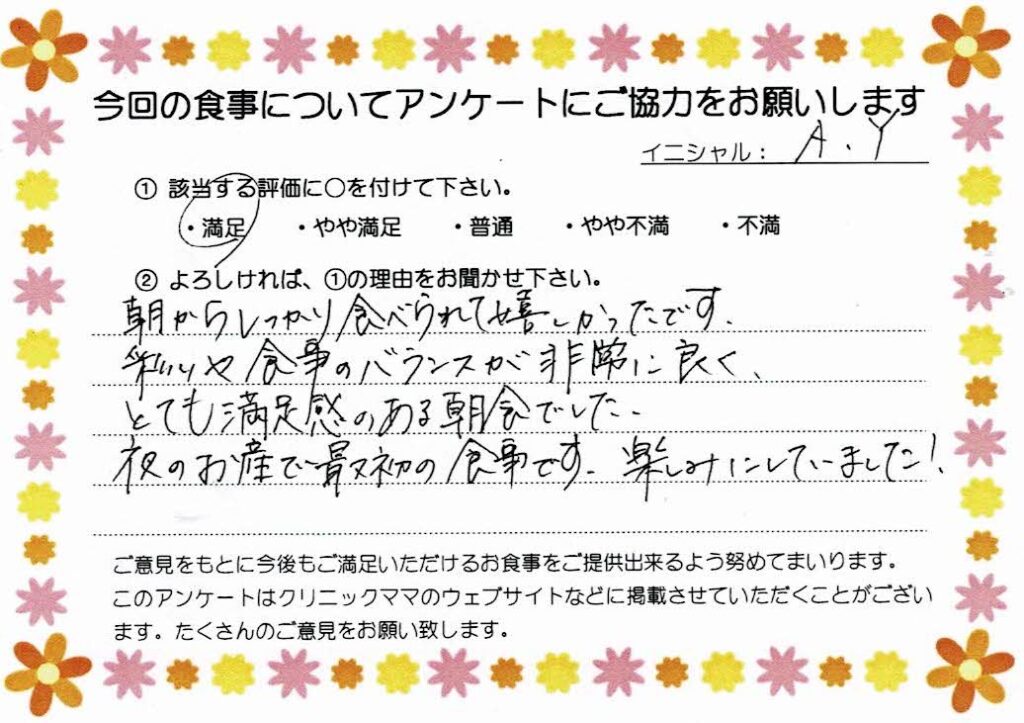 今回の食事についてアンケートにご協力をお願いします
イニシャル： A．Y
① 該当する評価に○を付けて下さい。
・満足　・やや満足　・普通　・やや不満　・不満
② よろしければ、①の理由をお聞かせ下さい。
朝からしっかり食べられて嬉しかったです。
彩りや食事のバランスが非常に良く、
とても満足感のある朝食でした。
夜のお産で最初の食事です。楽しみにしていました！
ご意見をもとに今後もご満足いただけるお食事をご提供出来るよう努めてまいります。
このアンケートはクリニックママのウェブサイトなどに掲載させていただくことがござい
ます。たくさんのご意見をお願い致します。